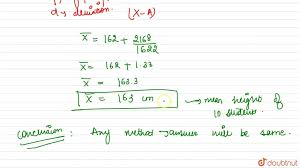 d → deviation. (X-A)
X̄ = 162 + 2168/1622
X̄ = 162 + 1.33
X̄ = 163.3
X̄ = 163 cm → mean height of
10 students.
Conclusion : Any method → answer will be same.
doubtnut